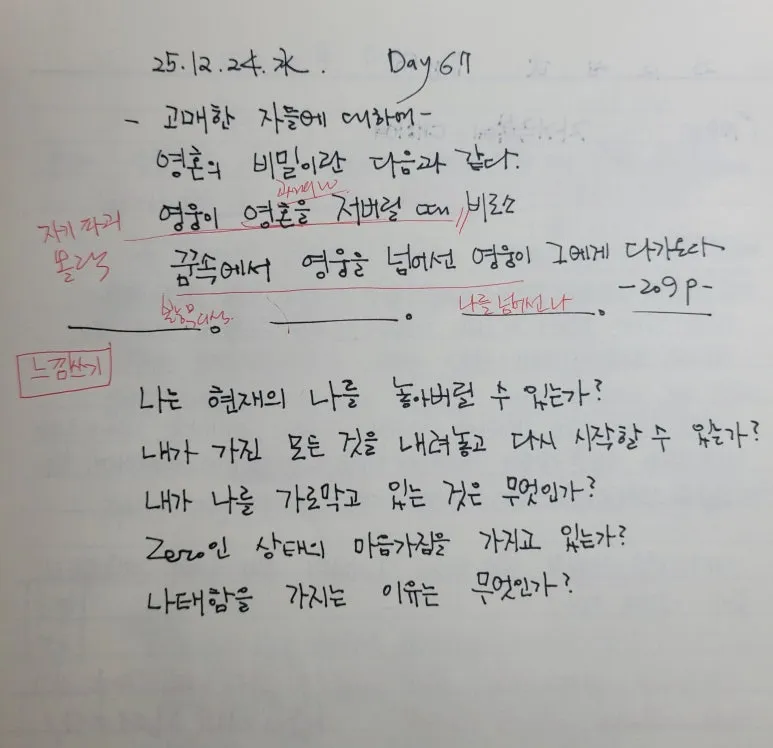 25.12.24.水. Day 67
- 고매한 자들에 대하여 -
영혼의 비밀이란 다음과 같다.
영웅이 영혼을 저버릴 때 비로소
자기 파괴
몰락
꿈속에서 영웅을 넘어선 영웅이 그에게 다가온다
-209 p-
나를 넘어선 나
느낌쓰기
나는 현재의 나를 놓아버릴 수 있는가?
내가 가진 모든 것을 내려놓고 다시 시작할 수 있는가?
내가 나를 가로막고 있는 것은 무엇인가?
Zero인 상태의 마음가짐을 가지고 있는가?
나태함을 가지는 이유는 무엇인가?